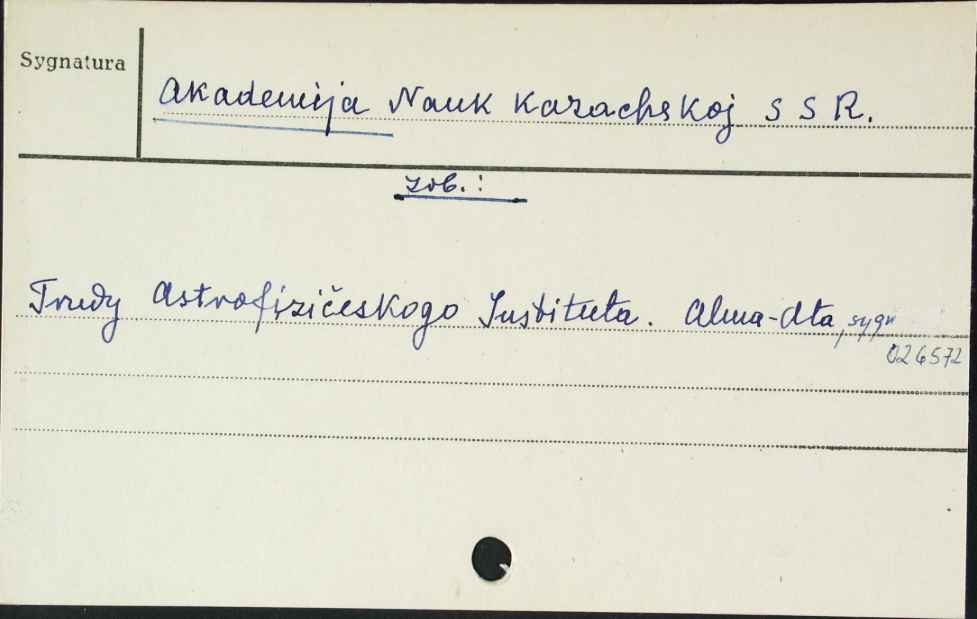 Sygnatura
Akademija Nauk Kazachskoj S S R.
zob. :
Trudy Astrofizičeskogo Instituta. Alma-Ata, sygn
026572